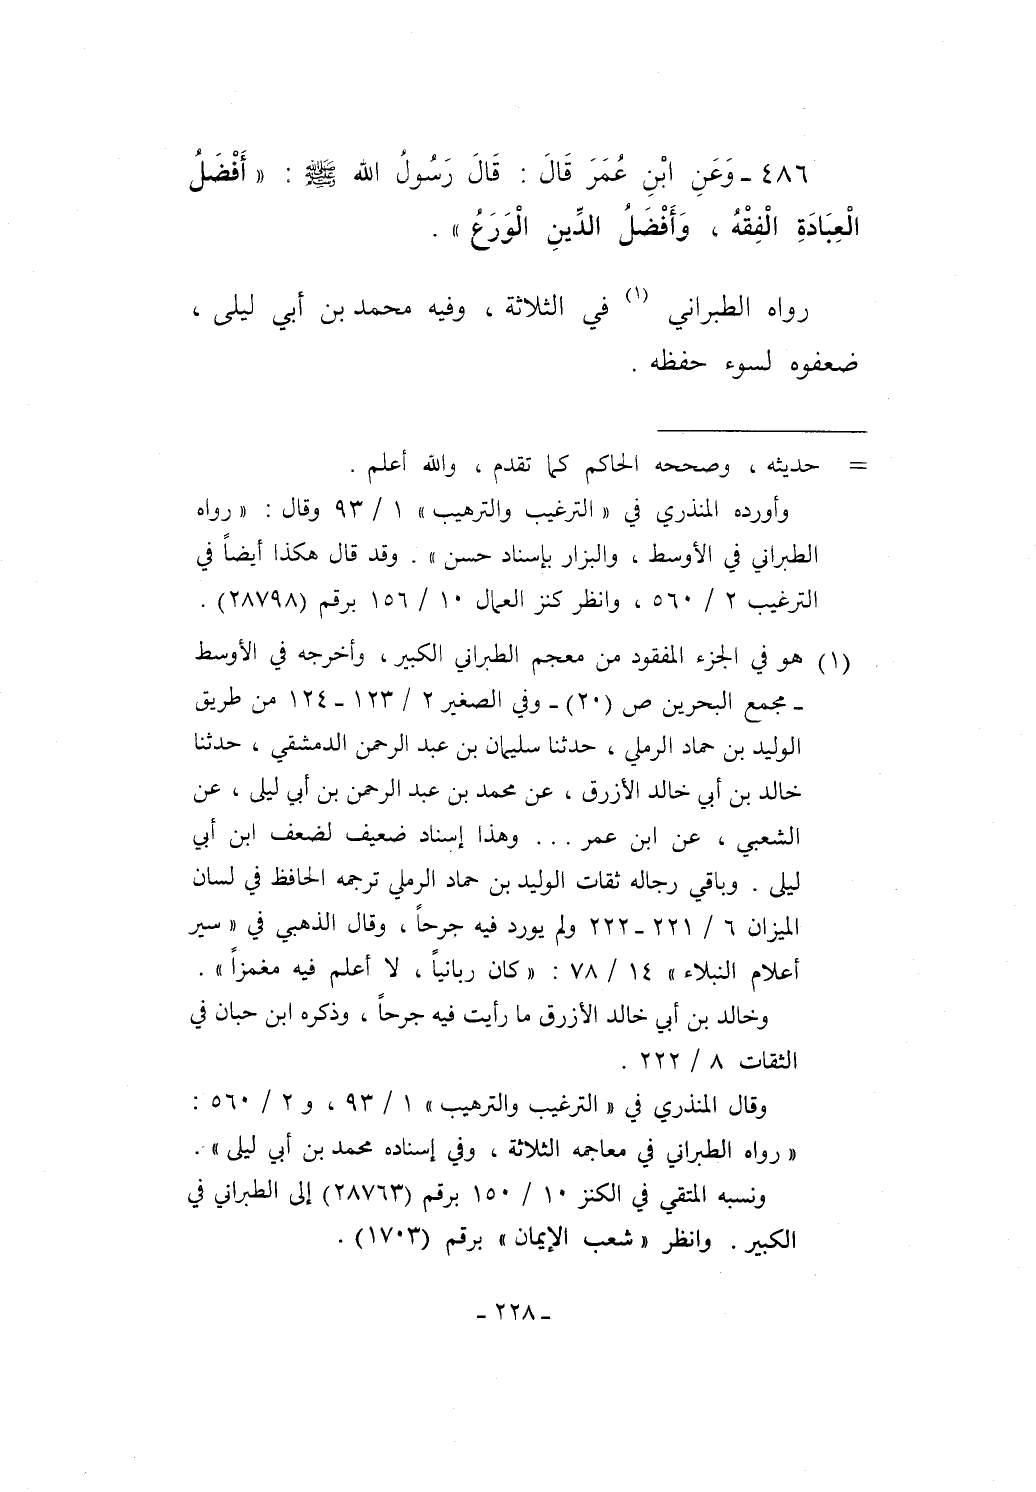 ٤٨٦ ـ وَعَنِ ابْنِ عُمَرَ قَالَ : قَالَ رَسُولُ الله ﷺ : « أَفْضَلُ
الْعِبَادَةِ الْفِقْهُ ، وَأَفْضَلُ الدِّينِ الْوَرَعُ » .
رواه الطبراني (١) في الثلاثة ، وفيه محمد بن أبي ليلى ،
ضعفوه لسوء حفظه .
= حديثه ، وصححه الحاكم كما تقدم ، والله أعلم .
وأورده المنذري في « الترغيب والترهيب » ١ / ٩٣ وقال : « رواه
الطبراني في الأوسط ، والبزار بإسناد حسن » . وقد قال هكذا أيضاً في
الترغيب ٢ / ٥٦٠ ، وانظر كنز العمال ١٠ / ١٥٦ برقم (٢٨٧٩٨) .
(١) هو في الجزء المفقود من معجم الطبراني الكبير ، وأخرجه في الأوسط
ـ مجمع البحرين ص (٢٠) ـ وفي الصغير ٢ / ١٢٣ ـ ١٢٤ من طريق
الوليد بن حماد الرملي ، حدثنا سليمان بن عبد الرحمن الدمشقي ، حدثنا
خالد بن أبي خالد الأزرق ، عن محمد بن عبد الرحمن بن أبي ليلى ، عن
الشعبي ، عن ابن عمر ... وهذا إسناد ضعيف لضعف ابن أبي
ليلى . وباقي رجاله ثقات الوليد بن حماد الرملي ترجمه الحافظ في لسان
الميزان ٦ / ٢٢١ ـ ٢٢٢ ولم يورد فيه جرحاً ، وقال الذهبي في « سير
أعلام النبلاء » ١٤ / ٧٨ : « كان ربانياً ، لا أعلم فيه مغمزاً » .
وخالد بن أبي خالد الأزرق ما رأيت فيه جرحاً ، وذكره ابن حبان في
الثقات ٨ / ٢٢٢ .
وقال المنذري في « الترغيب والترهيب » ١ / ٩٣ ، و ٢ / ٥٦٠ :
« رواه الطبراني في معاجمه الثلاثة ، وفي إسناده محمد بن أبي ليلى » .
ونسبه المتقي في الكنز ١٠ / ١٥٠ برقم (٢٨٧٦٣) إلى الطبراني في
الكبير . وانظر « شعب الإيمان » برقم (١٧٠٣) .
ـ ٢٢٨ ـ